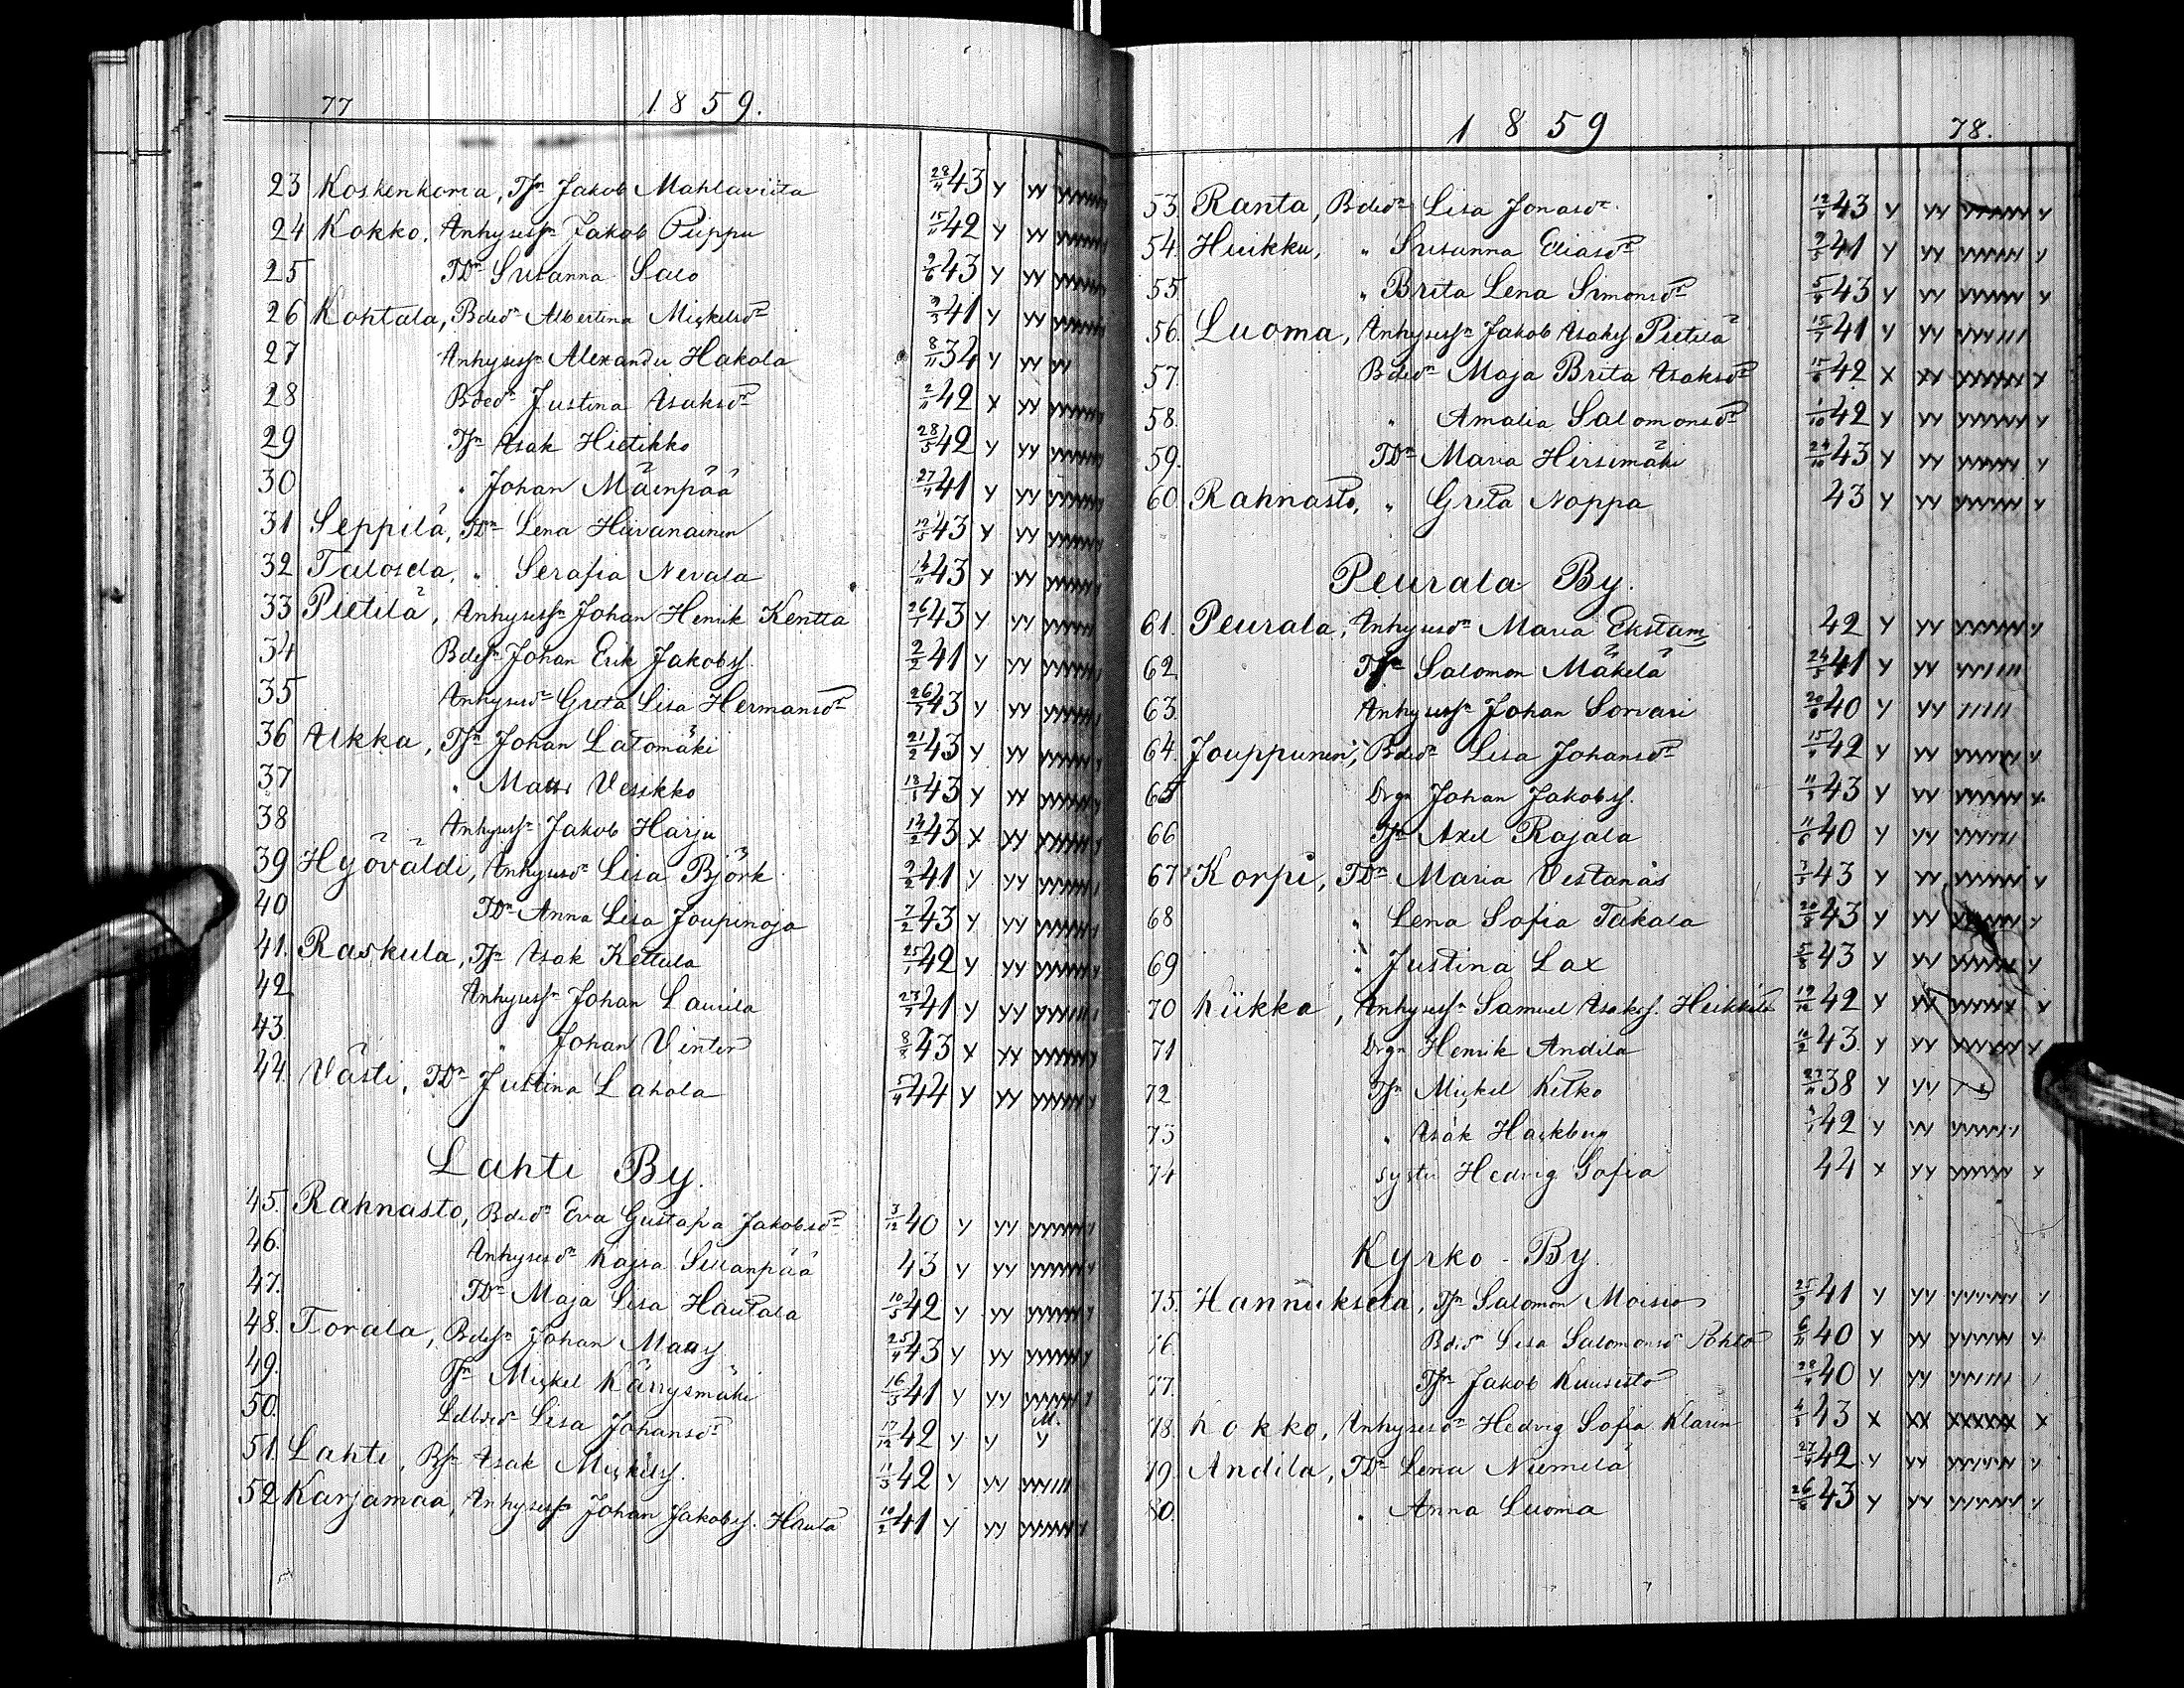 77 1859.
23 Koskenkorva, Tjn Jakob Mahlaviita 28/4 43 y yy yyyyyy
24 Kokko, Anhyressn Jakob Piippu 15/11 42 y yy yyyyyy
25 TDn Susanna Salo 2/6 43 y yy yyyyyy
26 Kohtala, Bdedn Albertina Mickelsdr 9/3 41 y yy yyyyyy
27 Anhyressn Alexander Hakola 8/11 34 y yy yy
28 Bdedn Justina Isaksdr 2/11 42 x yy yyyyyy
29 Tjn Isak Hietikko 28/5 42 y yy yyyyyy
30 " Johan Mäenpää 27/4 41 y yy yyyyyy
31 Seppilä, TDn Lena Hiivanainen 12/3 43 y yy yyyyyy
32 Talosela, " Serafia Nevala 43 y yy yyyyyy
33 Pietilä, Anhyressn Johan Henrik Kentta 26/1 43 y yy yyyyyy
34 Bdesn Johan Erik Jakobss. 2/2 41 y yy yyyyyy
35 Anhyresdn Greta Lisa Hermansdr 26/7 43 y yy yyyyyy
36 Ukka, Tjn Johan Latomäki 21/2 43 y yy yyyyyy
37 " Matts Vesikko 18/1 43 y yy yyyyyy
38 Anhyressn Jakob Harju 14/2 43 x yy yyyyyy
39 Hyöväldi, Anhyresdn Lisa Björk 2/2 41 y yy yyyyyy
40 TDn Anna Lisa Joupinoja 7/2 43 y yy yyyyyy
41. Raskula, Tjn Isak Kettula 25/1 42 y yy yyyyyy
42 Anhyressn Johan Laurila 23/7 41 y yy yyyy
43. " Johan Vinter 8/8 43 x yy yyyyyy
44. Västi, TDn Justina Lahola 5/4 44 y yy yyyyyy
Lahti By.
45. Rahnasto, Bdedn Eva Gustafva Jakobsdr 3/12 40 y yy yyyyyy
46. Anhyresdn Kajsa Sillanpää 43 y yy yyyyyy
47. TDn Maja Lisa Hautala 10/5 42 y yy yyyyyy
48. Torala, Bdesn Johan Matss. 25/4 43 y yy yyyyyy
49. Tjn Mickel Kärrysmäki 16/3 41 y yy yyyyyy
50. Ldbdedn Lisa Johansdr 17/12 42 y y y M.
51. Lahti, Bsn Isak Mickelss. 1/3 42 y yy yyy
52 Karjamaa, Anhyressn Johan Jakobss. Hauta 10/2 41 y yy yyyyyy
1859 78.
53. Ranta, Bdedn Lisa Jonasdr. 12/4 43 y yy yyyyyy y
54. Huikku, " Susanna Eliasdr 9/5 41 y yy yyyyy y
55. " Brita Lena Simonsdr 5/4 43 y yy yyyyyy y
56. Luoma, Anhyressn Jakob Isakss Pietilä 15/7 41 y yy yyy
57. Bdedn Maja Brita Isaksdr 15/6 42 x xx yyyyyy x
58. " Amalia Salomonsdr 1/10 42 y yy yyyyy y
59. TDn Maria Hirsimäki 24/10 43 y yy yyyyy y
60. Rahnasto, " Greta Noppa 43 y yy yyyyyy y
Peurala By.
61. Peurala, Anhyresdn Maria Ekstam 42 y yy yyyyyy
62. Tjn Salomon Mäkelä 24/5 41 y yy yyy
63. Anhyressn Johan Sorvari 20/6 40 y yy
64. Jouppunen, Bdedn Lisa Johansdr 15/4 42 y yy yyyyyy y
65 Drgn Johan Jakobss. 11/3 43 y yy yyyyyy y
66 Tjn Axel Rajala 11/6 40 y yy yyyyy
67 Korpi, TDn Maria Vestanäs 43 y yy yyyyy y
68 " Lena Sofia Takala 20/8 43 y yy y
69 " Justina Lax 5/8 43 y yy yyyyy y
70 Kiikka, Anhyressn Samuel Isakss. Heikkilä 19/12 42 y yy yyyyyy x
71 Drgn Henrik Andila 10/2 43 y yy yyyyyy y
72 Tjn Mickel Ketko 27/11 38 y yy
73 " Isak Hackberg 42 y yy yyyyy
74 syster Hedvig Sofia 44 x yy yyyyy y
Kyrko-By.
75. Hannuksela, Tjn Salomon Moisio 25/9 41 y yy yyyyy y
76. Bded Lisa Salomonsdr Pohto 6/11 40 y yy yyyyy y
77. Tjn Jakob Kuusisto 28/4 40 y yy yy
78. Kokko, Anhyresdn Hedvig Sofia Klarin 4/5 43 x xx xxxxxx x
79. Andila, TDn Lena Niemelä 27/4 42 y yy yyyyy y
80. " Anna Luoma 26/8 43 y yy yyyyy y